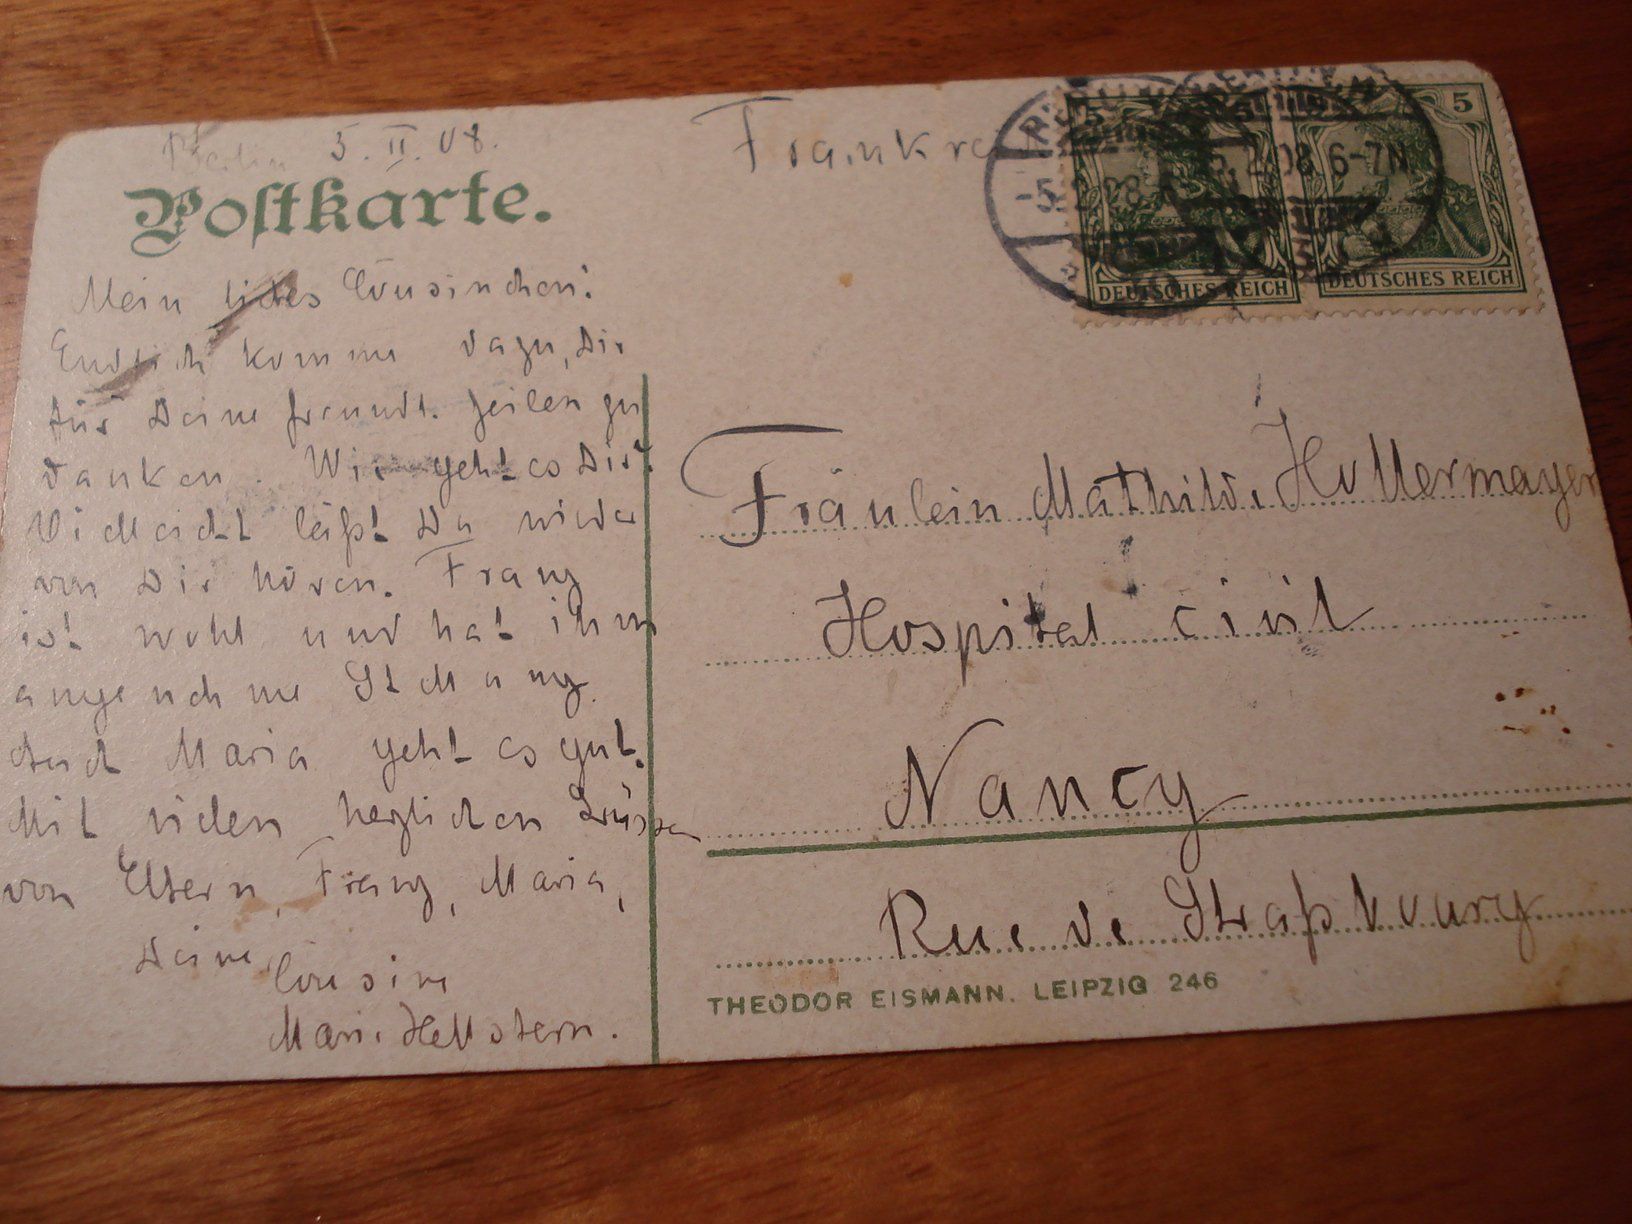 Berlin 5. II. 08.
Postkarte.
Mein liebes Cousinchen!
Endlich komme dazu, Dir
für Deine freundl. Zeilen zu
danken. Wie geht es Dir?
Vielleicht läßt Du wieder
von Dir hören. Franz
ist wohl und hat ihm
angenehme Stellung.
Auch Maria geht es gut.
Mit vielen herzlichen Grüssen
von Eltern, Franz, Maria,
Deine
Cousine
Marie Hellstern.
Frankre
5 5
-5.2.08 5.2.08 6-7N
DEUTSCHES REICH DEUTSCHES REICH
Fräulein Mathilde Hollermayer
Hospital civil
Nancy
Rue de Straßbourg
THEODOR EISMANN. LEIPZIG 246